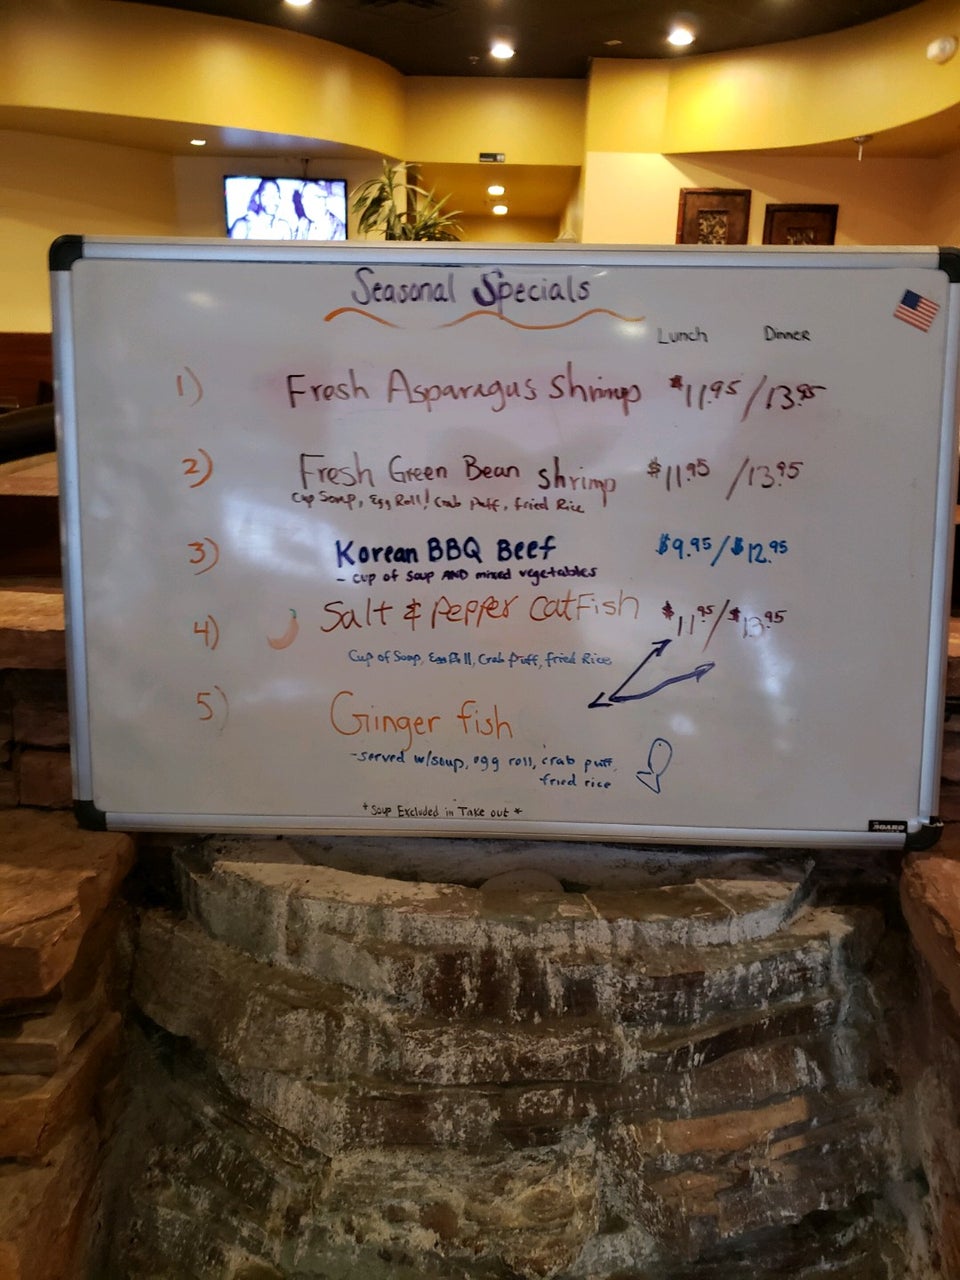 Seasonal Specials
Lunch Dinner
1) Fresh Asparagus Shrimp $11.95/13.95
2) Fresh Green Bean shrimp $11.95/13.95
Cup Soup, Egg Roll! Crab Puff, Fried Rice
3) Korean BBQ Beef $9.95/$12.95
- cup of soup AND mixed vegetables
4) Salt & pepper CatFish $11.95/$13.95
Cup of Soup, Egg Roll, Crab Puff, Fried Rice
5) Ginger fish
-served w/soup, egg roll, crab puff,
fried rice
*Soup Excluded in Take out*
BOARD